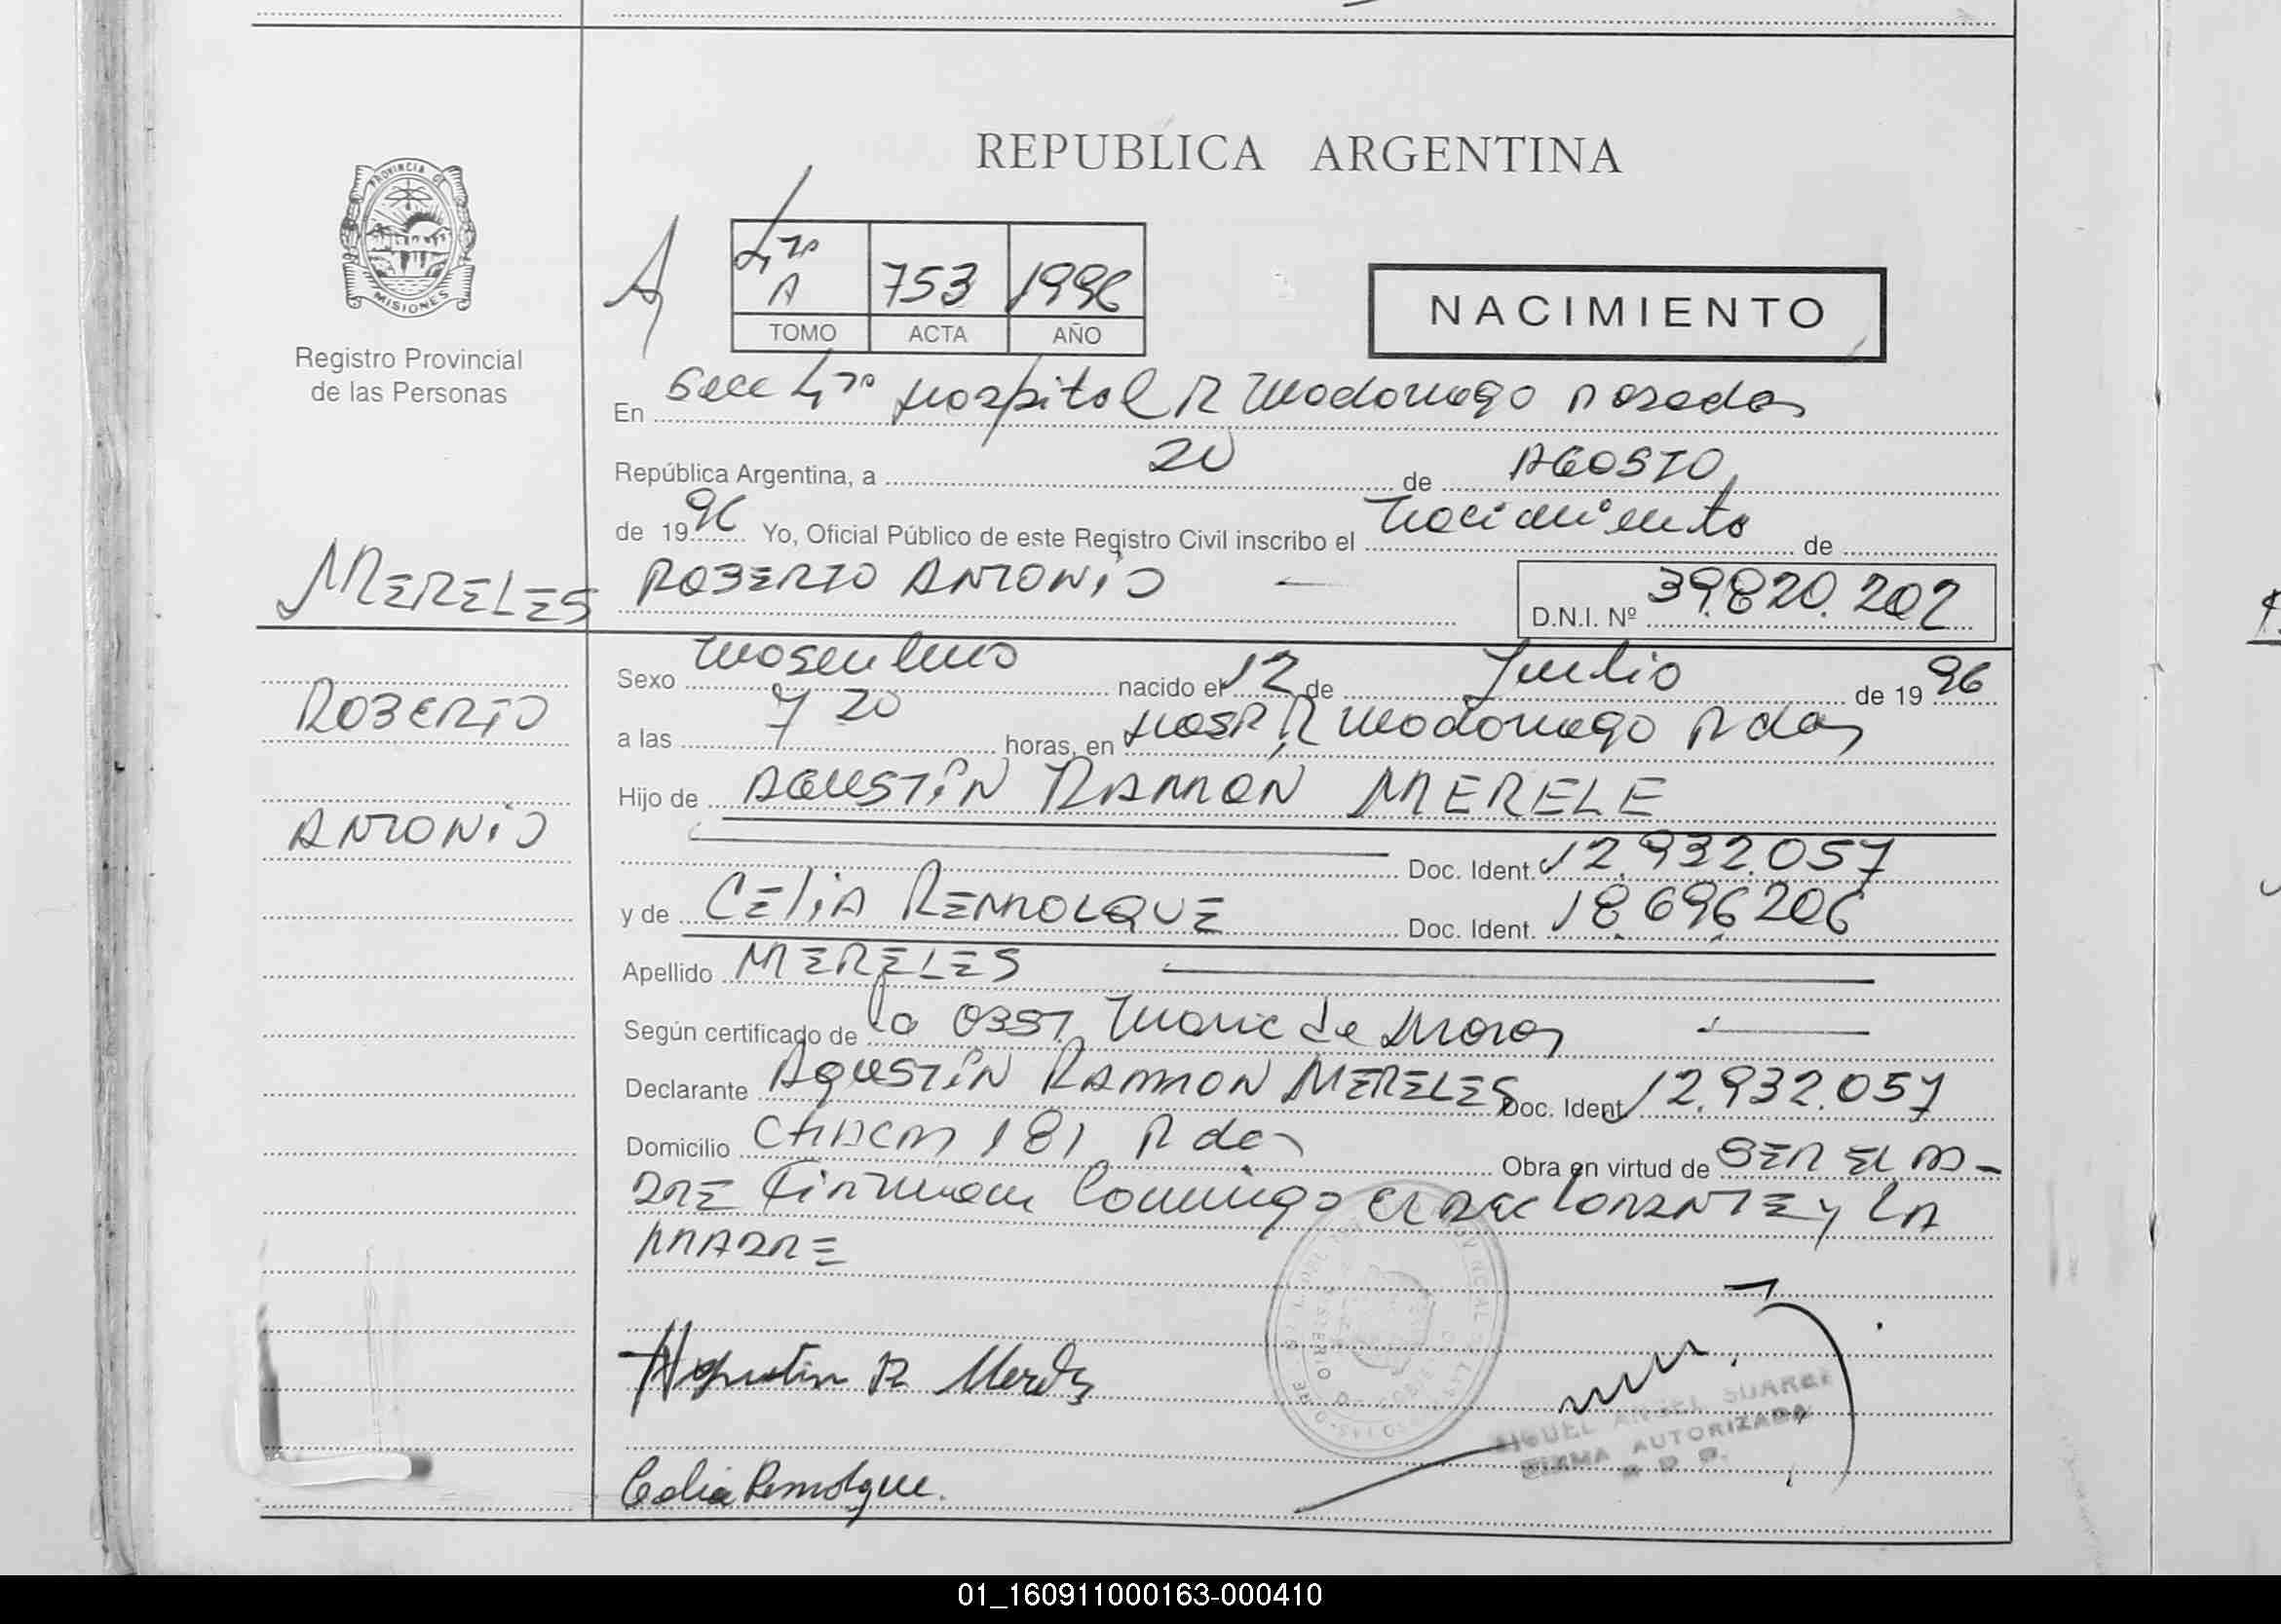 REPUBLICA ARGENTINA
PROVINCIA DE
MISIONES
Registro Provincial
de las Personas
A
4to A 753 1996
TOMO ACTA AÑO
NACIMIENTO
En Secc 4ta Hospital R Madariaga Posadas
República Argentina, a 20 de AGOSTO
de 1996 Yo, Oficial Público de este Registro Civil inscribo el nacimiento de
MERELES ROBERTO ANTONIO — D.N.I. Nº 39.820.202
Sexo masculino nacido el 12 de Julio de 1996
ROBERTO
a las 7 20 horas, en Hosp R Madariaga Pdas
Hijo de AGUSTIN RAMON MERELE
ANTONIO
Doc. Ident. 12.932.057
y de CELIA REMOLQUE Doc. Ident. 18.696.206
Apellido MERELES
Según certificado de la OBST. de Moras
Declarante AGUSTIN RAMON MERELES Doc. Ident. 12.932.057
Domicilio CHACRA 181 Pdas Obra en virtud de SER EL PA-
DRE Firman Conmigo El DECLARANTE y LA
MADRE
Agustin R Mereles
MIGUEL ANGEL SUAREZ
FIRMA AUTORIZADA
R P P.
Celia Remolque.
01_160911000163-000410